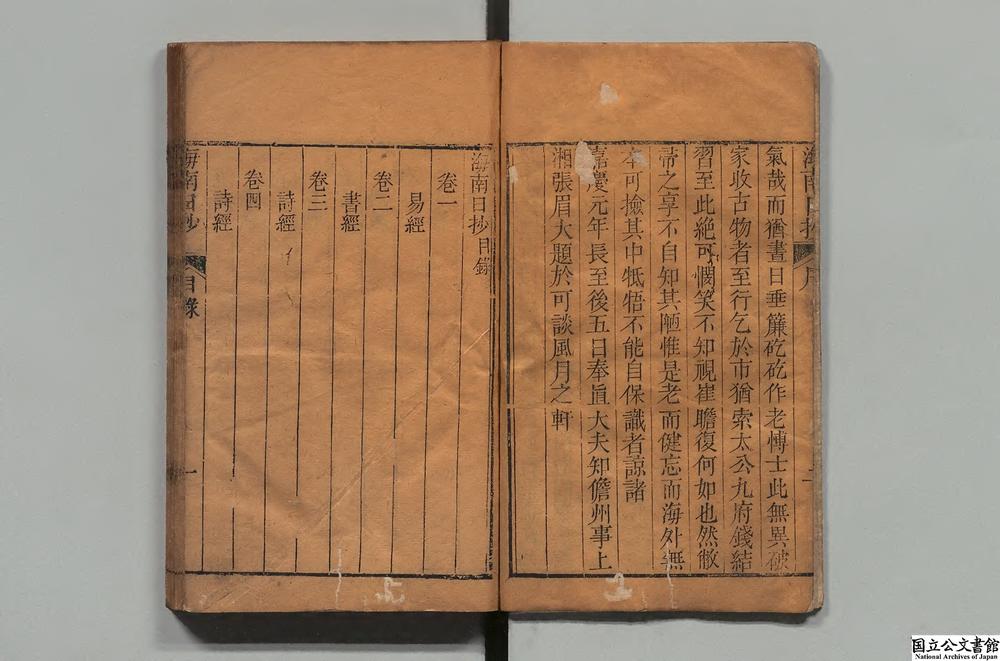 海南日抄 序
氣哉而猶晝日垂簾矻矻作老慱士此無異破
家收古物者至行乞於市猶索太公九府錢結
習至此絶可憫笑不知視崔瞻復何如也然敝
帚之享不自知其陋惟是老而健忘而海外無
本可撿其中牴牾不能自保識者諒諸
嘉慶元年長至後五日奉直大夫知儋州事上
湘張眉大題於可談風月之軒
海南日抄目錄
卷一
易經
卷二
書經
卷三
詩經
卷四
詩經
海南日抄 目錄 一
国立公文書館
National Archives of Japan